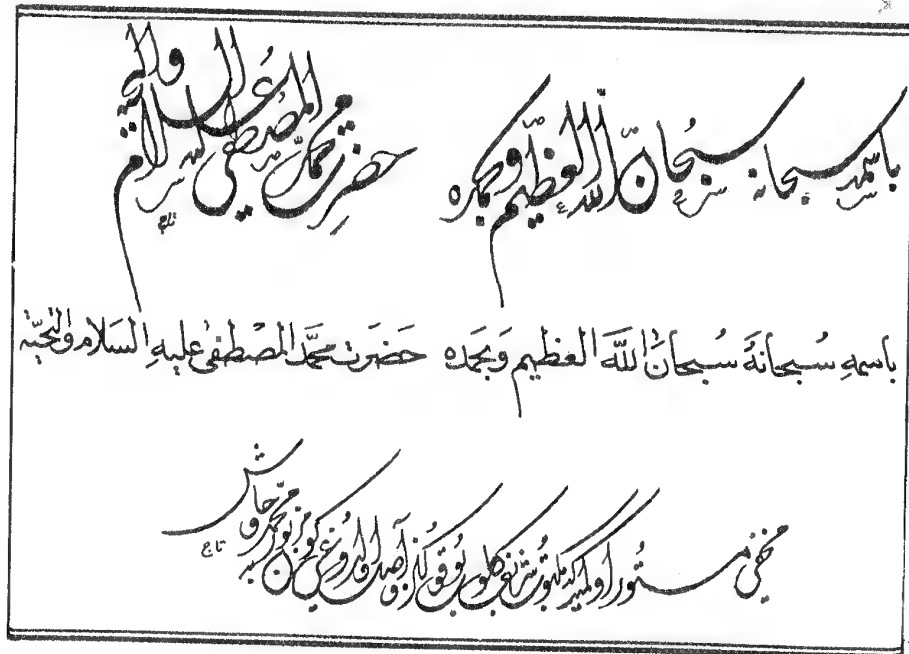 باسمه سبحانه سبحان الله العظيم وبحمده حضرت محمد المصطفى عليه السلام والتحية
باسمهِ سُبحانهُ سُبحانَ اللَّه العظيم وَبحمده حَضَرَت محمَّد المصْطفىٰ عليهِ السَلام والتحيّة
مخفى مستور كلوب بو واصل اولدوغى مزبور محمد